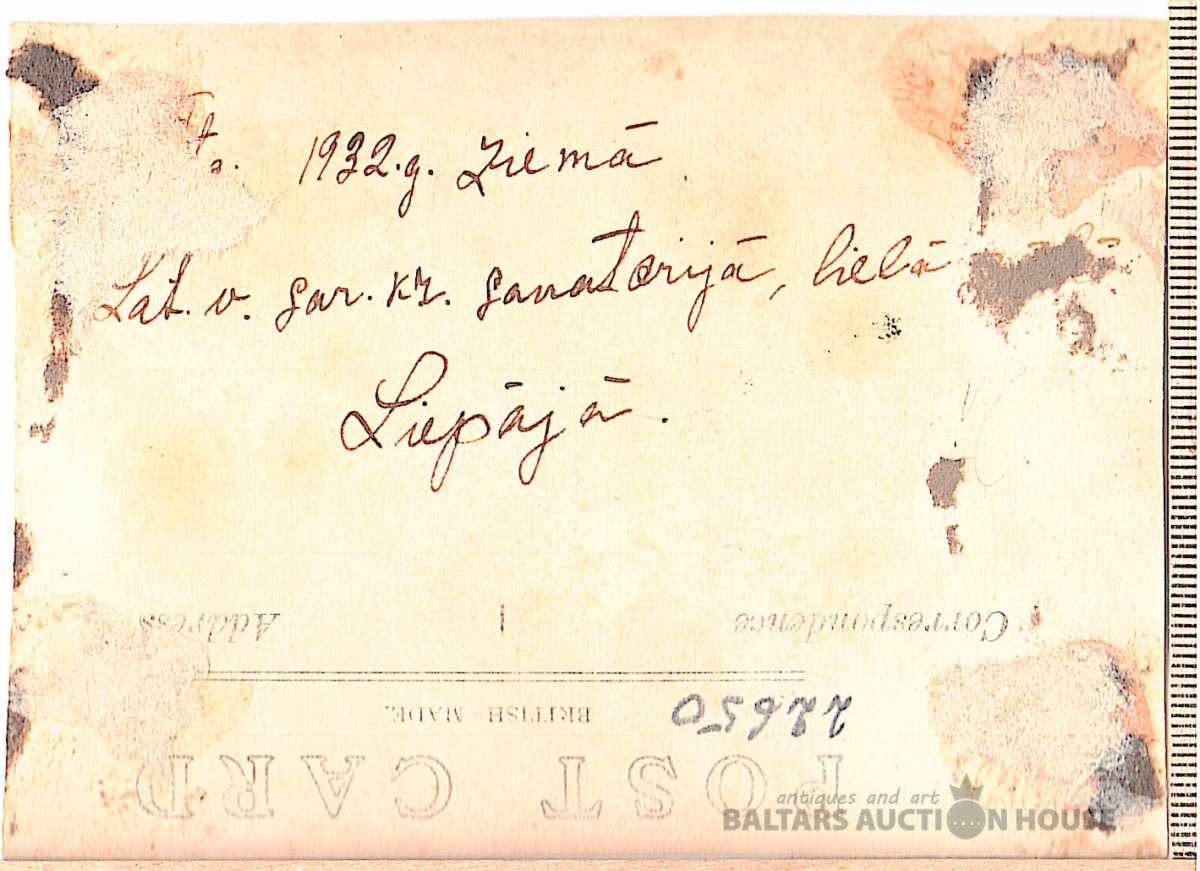 1932.g. Ziemā
Lat. v. sar. kr. sanatorijā, lielā
Liepājā.
Correspondence
Address
BRITISH MADE.
22650
POST CARD
antiques and art
BALTARS AUCTION HOUSE